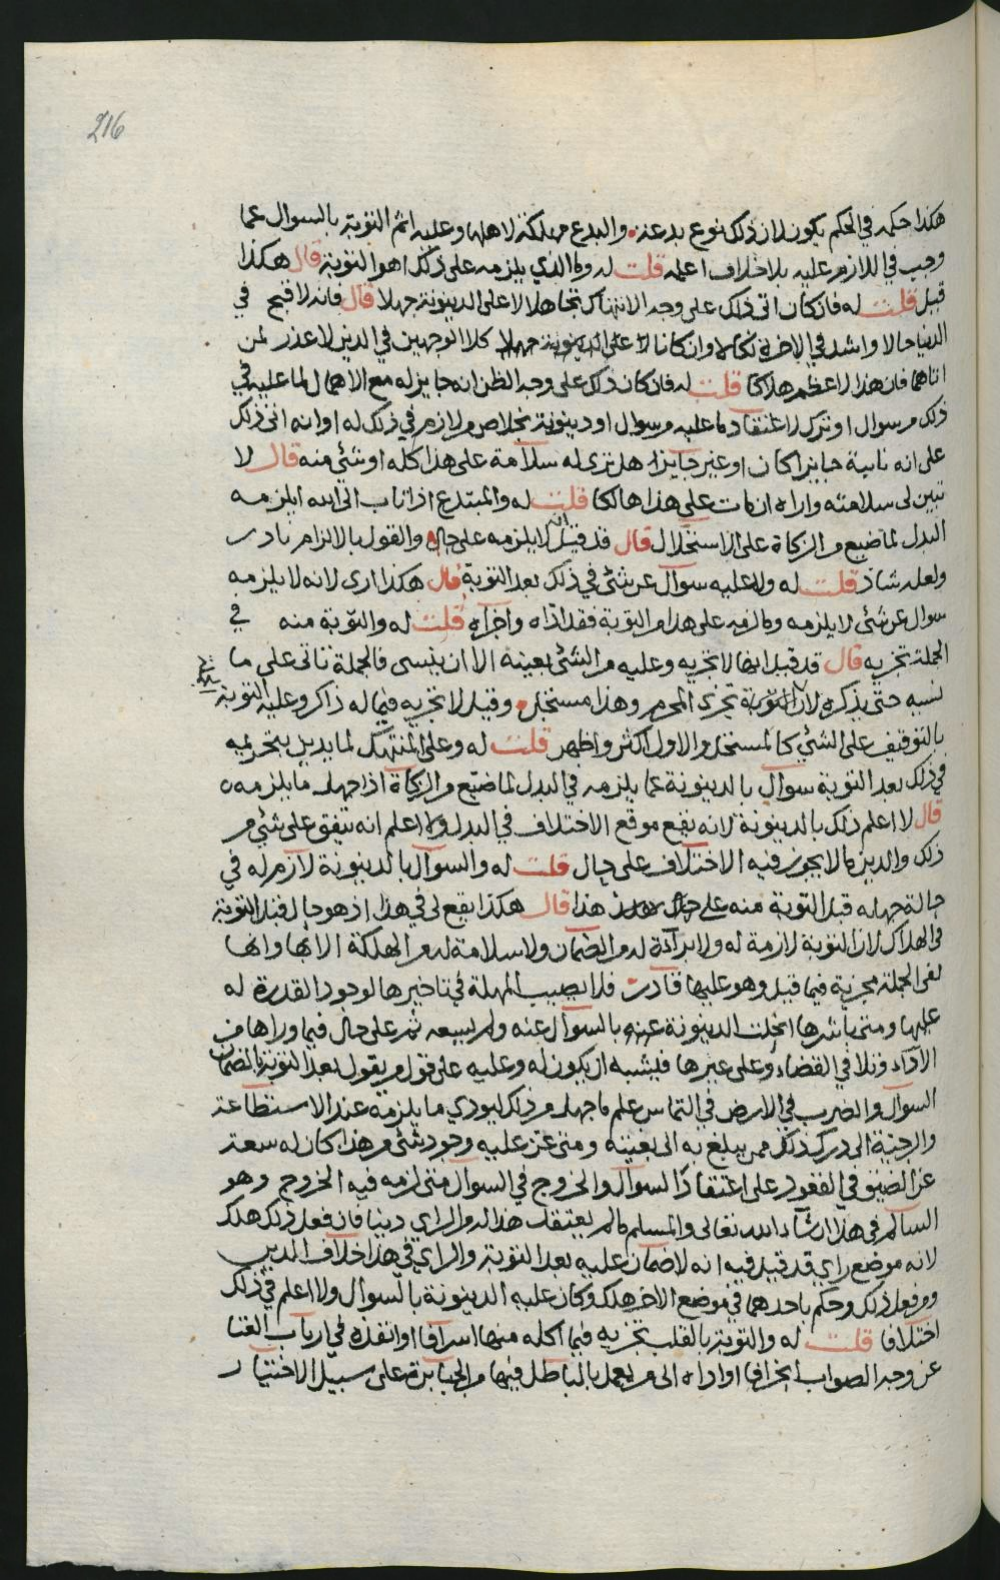 216
هكذا حكمه في الحكم يكون لان ذلك نوع بدعة والبدع مهلكة لاهلها وعليه اثم التوبة بالسوال عما
وجب في اللازم عليه بلا خلاف اعلمه قلت له وما الذي يلزمه على ذلك اهو التوبة قال هكذا
قيل قلت له فان كان اتى ذلك على وجه الانتهاك تجاهلا لا على الدينونة جهلا قال فانه لاقبح في
الدنيا حالا واشد في الاخرة نكالا وان كانا لا على الدينونة جهلا كلا الوجهين في الدين لا عذر لمن
اتاهما فان هذا لاعظم هلاكا قلت له فان كان ذلك على وجه الظن انه جايز له مع الاهمال لما عليه في
ذلك من سوال او ترك لاعتقاد ما عليه من سوال او دينونة بخلاص من لازم في ذلك له او انه اتى ذلك
على انه نايبة جايزا كان او غير جايز اهل ترى له سلامة على هذا كله او شئ منه قال لا
تبين لى سلامته واراه ان مات على هذا هالكا قلت له والمبتدع اذا تاب الى الله ايلزمه
البدل لما ضيع من الزكاة على الاستحلال قال قد قيل انه لا يلزمه على حال والقول بالالزام نادر
ولعله شاذ قلت له ولا عليه سوال عن شئ في ذلك بعد التوبة قال هكذا ارى لانه لا يلزمه
سوال عن شئ لا يلزمه وما لزمه على هذا من التوبة فقد اداه واجزاه قلت له والتوبة منه في
الجملة تجزيه قال قد قيل انها لا تجزيه وعليه من الشئ بعينه الا ان ينسى فالجملة تاتى على ما
نسيه حتى يذكره لان التوبة تجزى المحرم وهذا مستحل وقيل لا تجزيه فيما له ذاكر وعليه التوبة
بالتوقيف على الشئ كالمستحل والاول اكثر واظهر قلت له وعلى المنتهك لما يدين بتحريمه
في ذلك بعد التوبة سوال بالدينونة عما يلزمه في البدل لما ضيع من الزكاة اذا جهل ما يلزمه
قال لا اعلم ذلك بالدينونة لانه يقع موقع الاختلاف في البدل ولا اعلم انه يتفق على شئ من
ذلك والدين ما لا يجوز فيه الاختلاف على حال قلت له والسوال بالدينونة لازم له في
حالة جهله قبل التوبة منه على حال هذا قال هكذا يقع لى في هذا اذ هو حال قبل التوبة
في الهلاك لان التوبة لازمة له ولا براءة له من الضمان ولا سلامة له من الهلكة الا بها وانها
لفى الجملة مجزية فيما قيل وهو عليها قادر فلا نصيب المهلة في تاخيرها لوجود القدرة له
عليها ومتى باشرها انحلت الدينونة عنه بالسوال عنه ولم يسعه ثم على حال فيما وراها من
الاداء في القضاء وعلى غيرها فيشبه ان يكون له وعليه على قول من يقول بعد التوبة بالضمان
السوال والضرب في الارض في التماس علم ما جهله من ذلك ليودي ما يلزمه عند الاستطاعة
والرجية الى درك ذلك ممن يبلغ به الى بغيته ومتى عز عليه وجود شئ من هذا كان له سعة
عن الضيق في القعود على اعتقاد السوال والخروج في السوال متى لزمه فيه الخروج وهو
السالم في هذا ان شاء الله تعالى والمسلم ما لم يعتقد هذا من الراي دينا فان فعل ذلك هلك
لانه موضع راي قد قيل فيه انه لا ضمان عليه بعد التوبة والراي في هذا خلاف الدين
ومن فعل ذلك وحكم باحدهما في موضع الاخر هلك وكان عليه الدينونة بالسوال ولا اعلم في ذلك
اختلافا قلت له والتوبة بالقلب تجزيه فيما اكله منها اسرافا او انفذه في ارباب الغنا
عن وجه الصواب انحرافا او اداه الى من يعمل بالباطل فيها من الجبابرة على سبيل الاختيار